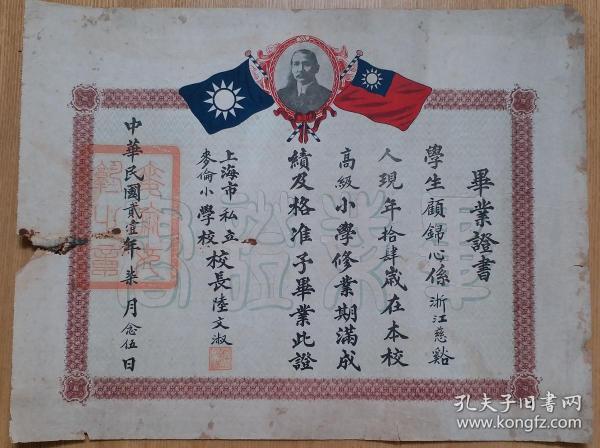 畢業證書
學生顧錦心係浙江慈谿
人現年拾肆歲在本校
高級小學修業期滿成
績及格准予畢業此證
上海市私立
麥倫小學校校長陸文淑
中華民國貳壹年柒月念伍日
畢業證書
孔夫子旧书网
www.kongfz.com